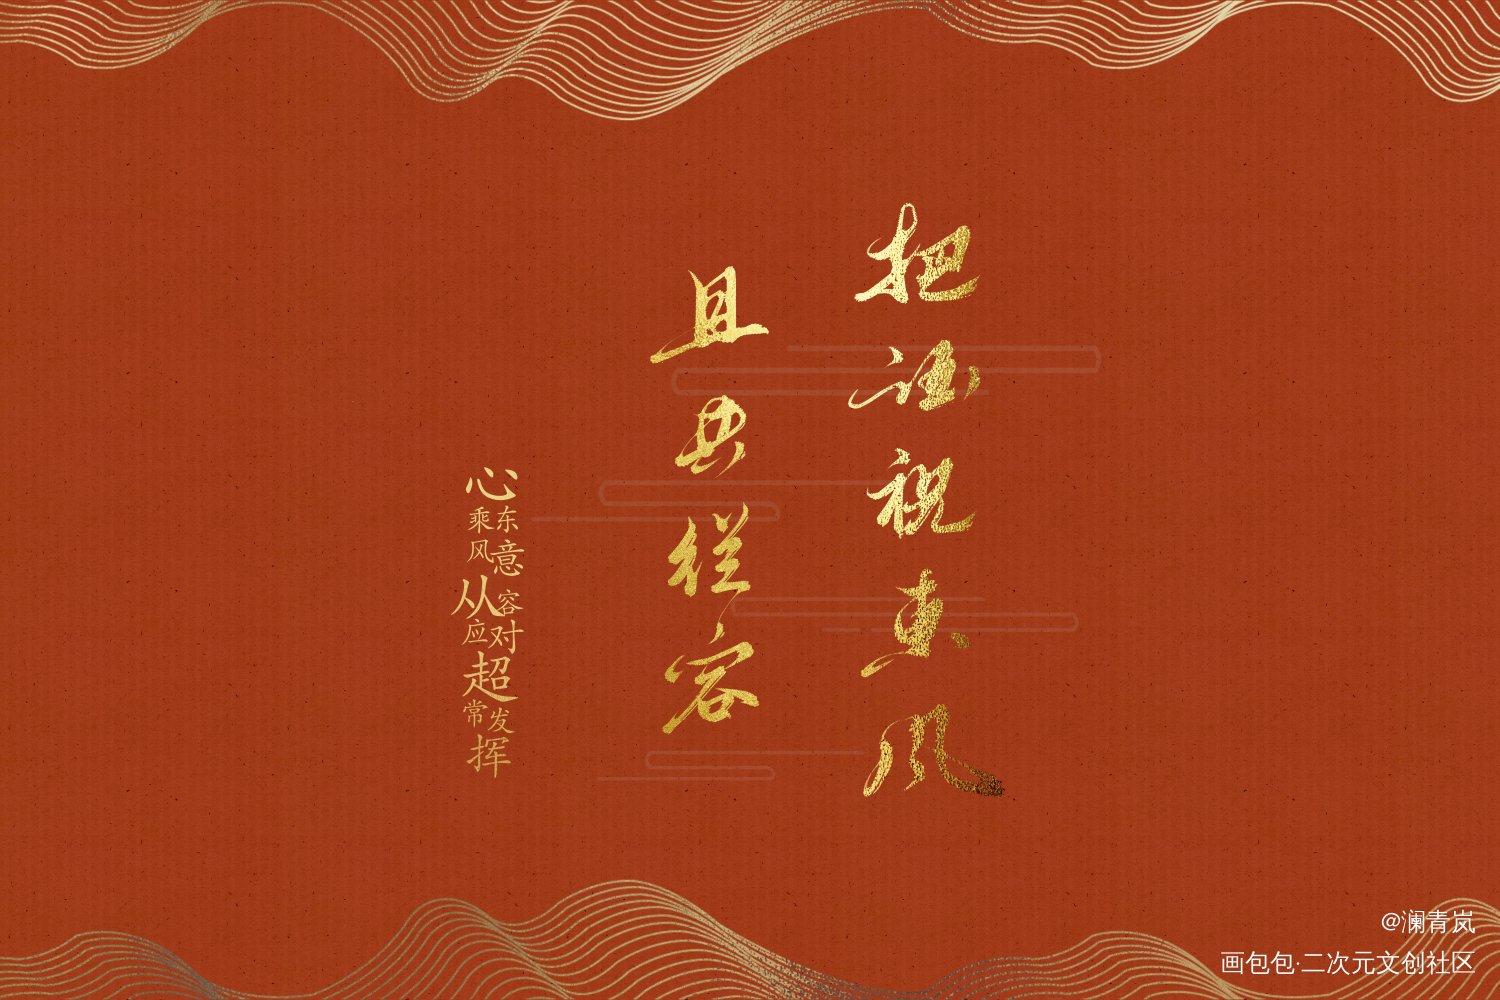 把酒祝東風
且共從容
心乘东风意从容应对超常发挥
@澜青岚
画包包·二次元文创社区